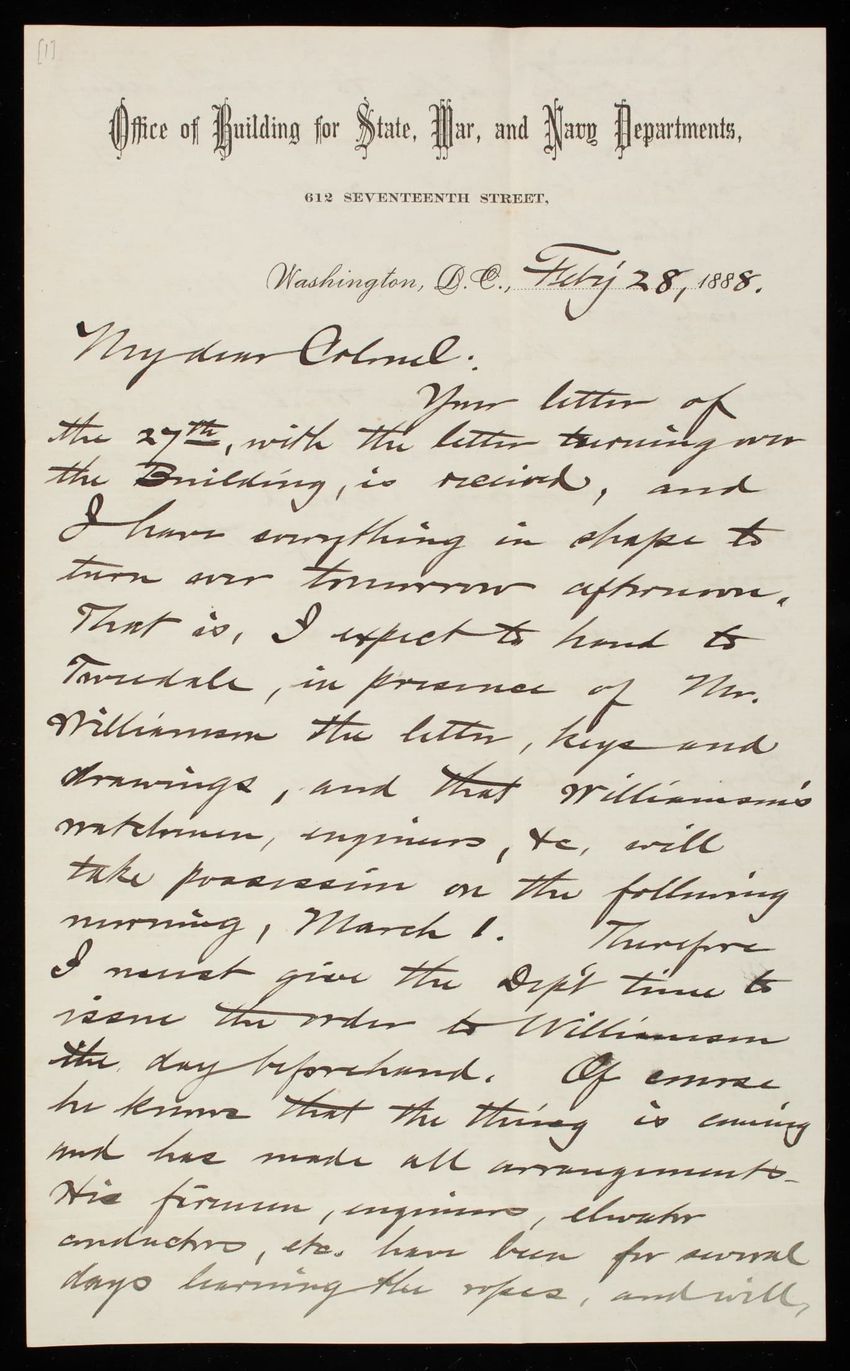 [1]
Office of Building for State, War, and Navy Departments,
612 SEVENTEENTH STREET,
Washington, D. C., Feb'y 28, 1888.
My dear Colonel:
Your letter of
the 27th, with the letter turning over
the Building, is received, and
I have everything in shape to
turn over tomorrow afternoon.
That is, I expect to hand to
Tweedale, in presence of Mr.
Williamson the letter, keys and
drawings, and that Williamson's
watchmen, engineers, &c, will
take possession on the following
morning, March 1. Therefore
I must give the Dep't time to
issue the order to Williamson
the day beforehand. Of course
he knows that the thing is coming
and has made all arrangements.
His firemen, engineers, elevator
conductors, etc. have been for several
days learning the ropes, and will,